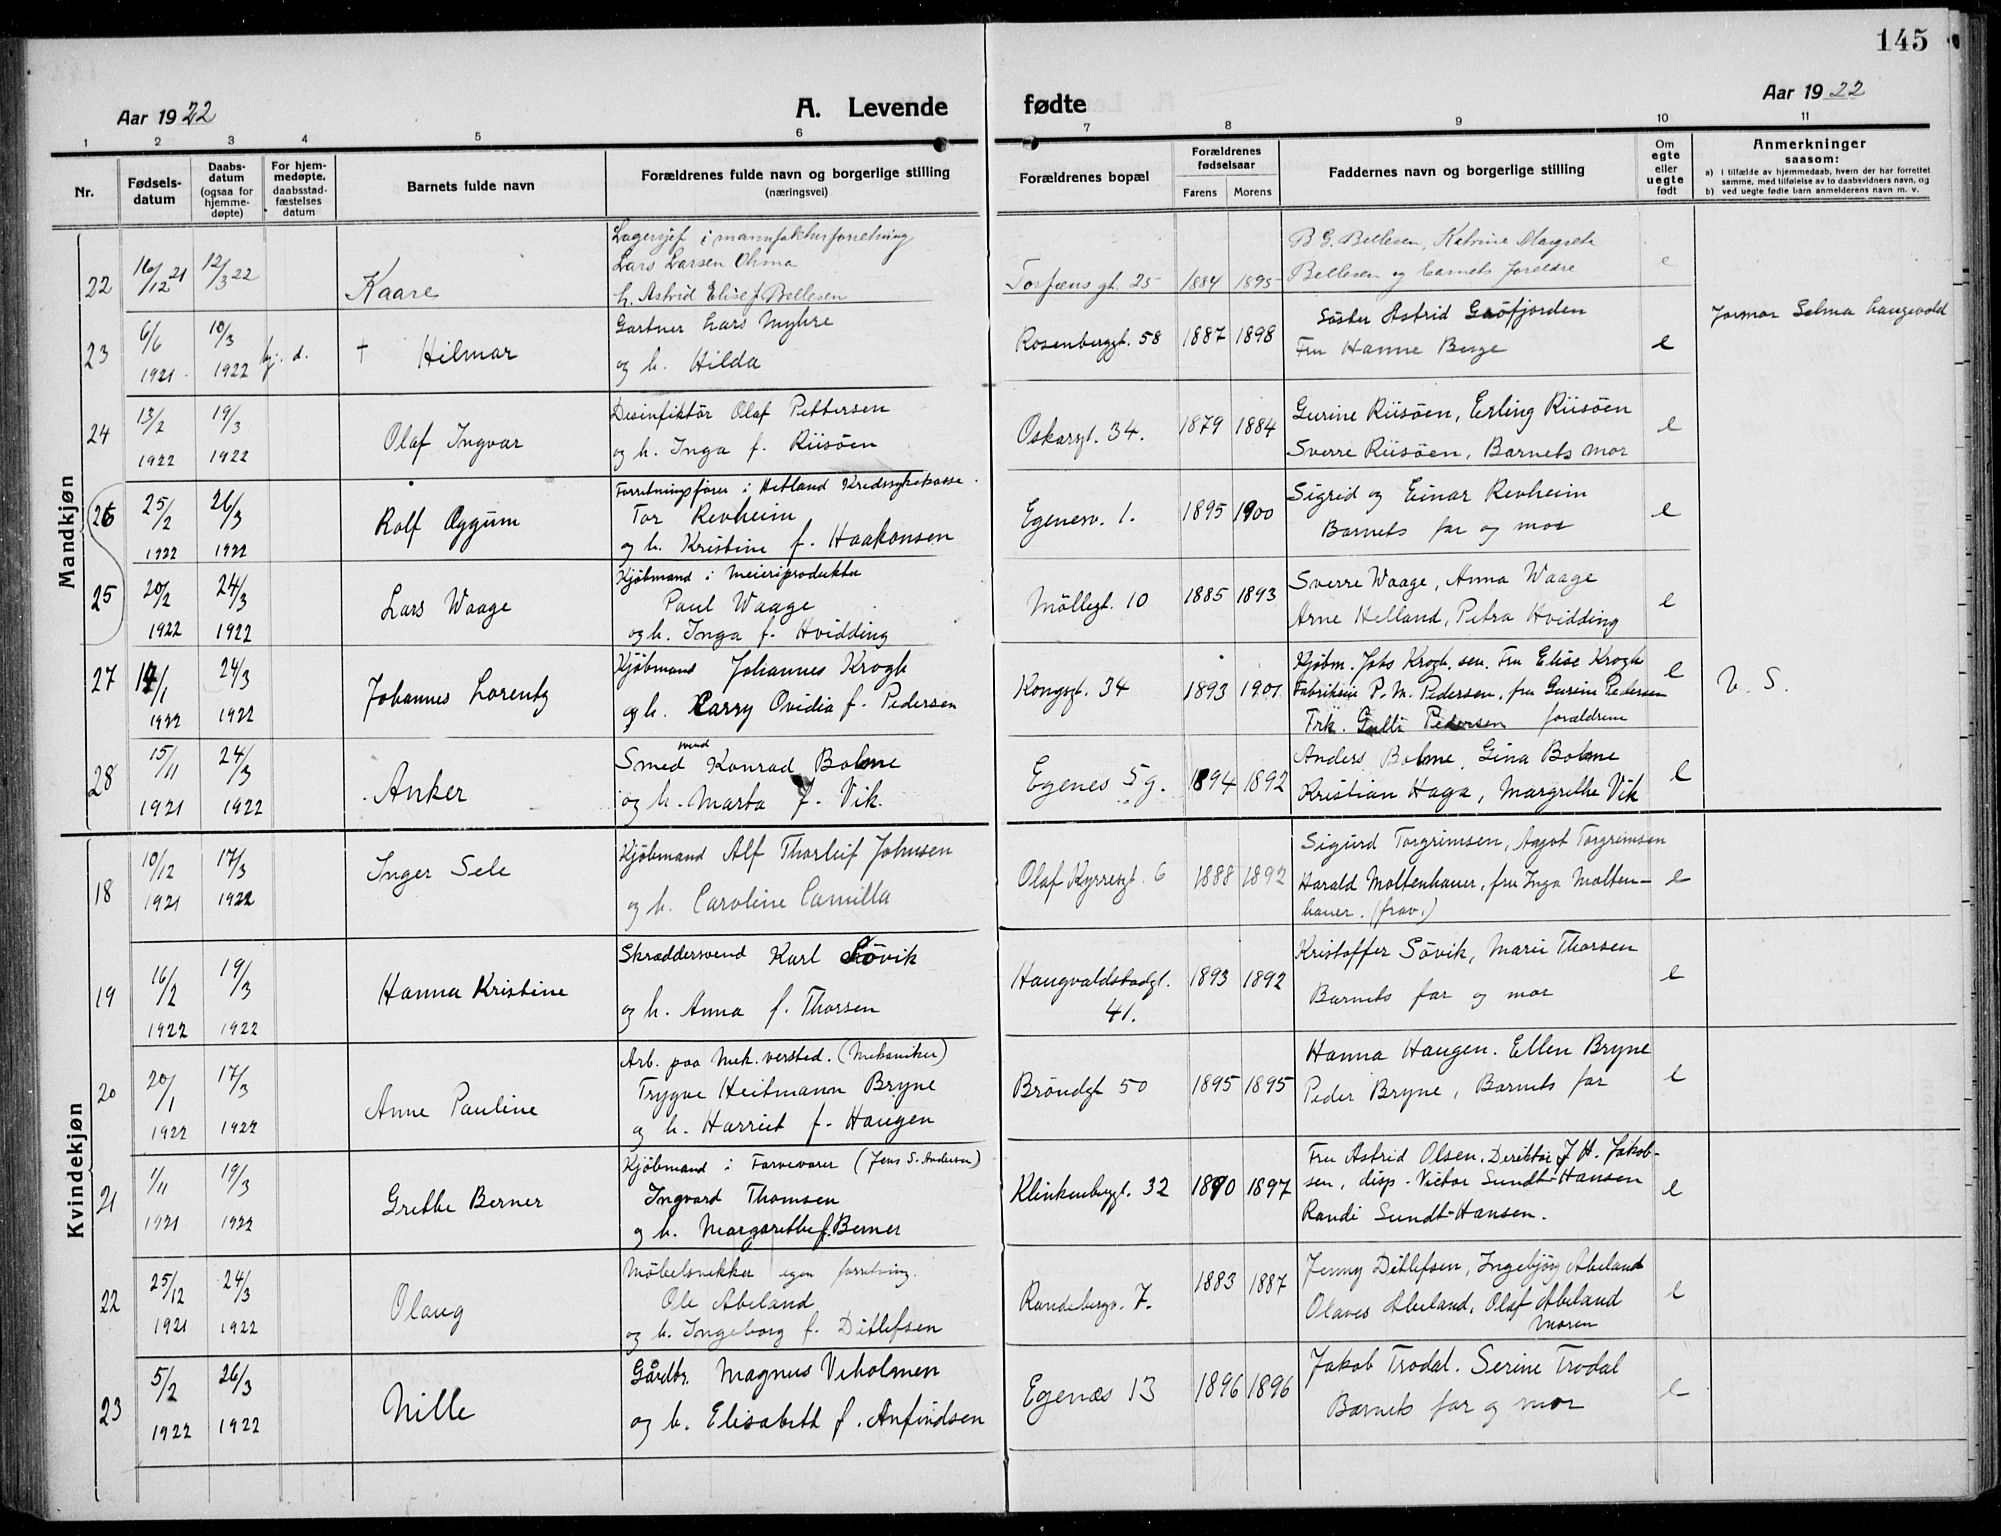 145
Aar 1922
A. Levende fødte
Aar 1922
1 2 3 4 5 6 7 8 9 10 11
Nr.
Fødsels-
datum
Daabs-
datum
(ogsaa for
hjemme-
døpte)
For hjem-
medøpte,
daabsstad-
fæstelses
datum
Barnets fulde navn
Forældrenes fulde navn og borgerlige stilling
(næringsvei)
Forældrenes bopæl
Forældrenes
fødselsaar
Farens Morens
Faddernes navn og borgerlige stilling
Om
egte
eller
uegte
født
Anmerkninger
saasom:
a) I tilfælde av hjemmedaab, hvem der har forrettet
samme, med tilføielse av to daabsvidners navn, og
b) ved uegte fødte barn anmelderens navn m. v.
Mandkjøn
22 16/12 21 12/3 22 Kaare
Lagersjef i manufakturforretning
Lars Larsen Ohma
h. Astrid Elise f. Bellesen
Torfæus gt. 25 1884 1895
B G. Bellesen, Katrine Margrete
Bellesen og barnets foreldre
e
23 6/6 1921 10/3 1922 hj. d. † Hilmar
Gartner Lars Myhre
og h. Hilda
Rosenberggt. 58 1887 1898
Söster Astrid Gröfjorden
Fru Hanne Berge
e
Jormor Selma Laugevold
24 13/2 1922 19/3 1922 Olaf Ingvar
Desinfiktör Olaf Pettersen
og h. Inga f. Riisöen
Oskarsgt. 34. 1879 1884
Gurine Riisöen, Erling Riisöen
Sverre Riisöen, Barnets mor
e
26 25/2 1922 26/3 1922 Rolf Oygum
Forretningsförer i Hetland Kredssykekasse.
Tor Revheim
og h. Kristine f. Haakonsen
Egenesv. 1. 1895 1900
Sigrid og Einar Revheim
Barnets far og mor
e
25 20/2 1922 24/3 1922 Lars Waage
Kjöbmand i Meieriprodukter
Paul Waage
og h. Inga f. Hvidding
Möllegt. 10 1885 1893
Sverre Waage, Anna Waage
Arne Helland, Petra Hvidding
e
27 14/1 1922 24/3 1922 Johannes Lorentz
Kjöbmand Johannes Krogh
og h. Carry Ovidia f. Pedersen
Kongsgt. 34 1893 1901
Kjöbm. Johs Krogh. sen. Fru Elise Krogh
Fabrikeier P. M. Pedersen, fru Gurine Pedersen
Frk. Gulli Pedersen forældrene
e
V. S.
28 15/11 1921 24/3 1922 Anker
Smedsvend Konrad Bolme
og h. Marta f. Vik.
Egenes 5g. 1894 1892
Anders Bolme, Gina Bolme
Kristian Haga, Margrethe Vik
e
Kvindekjøn
18 10/12 1921 17/3 1922 Inger Sele
Kjöbmand Alf Thorleif Johnsen
og h. Caroline Camilla
Olaf Kyrresgt. 6 1888 1892
Sigurd Torgrimsen, Aagot Torgrimsen
Harald Moltenhauer, fru Inga Molten-
hauer. (frav.)
e
19 16/2 1922 19/3 1922 Hanna Kristine
Skræddersvend Karl Sövik
og h. Anna f. Thorsen
Haugvaldstadgt.
41. 1893 1892
Kristoffer Sövik, Marie Thorsen
Barnets far og mor
e
20 20/1 1922 17/3 1922 Anne Pauline
Arb. paa Mek. versted. (Mekaniker)
Trygve Heitmann Bryne
og h. Harriet f. Haugen
Bröndgt 50 1895 1895
Hanna Haugen. Ellen Bryne
Peder Bryne, Barnets far
e
21 1/11 1921 19/3 1922 Grethe Berner
Kjöbmand i Farvevarer (Jens S. Andersen)
Ingvard Thomsen
og h. Margarethe f. Berner
Klinkenberggt. 32 1890 1897
Fru Astrid Olsen. Direktör J H. Jakob-
sen, disp. Victor Sundt-Hansen
Randi Sundt-Hansen.
e
22 25/12 1921 24/3 1922 Olaug
Möbelsnekker egen forretning.
Ole Abeland
og h. Ingeborg f. Ditlefsen
Randebergv. 7. 1883 1887
Jenny Ditlefsen, Ingebjörg Abeland
Olaves Abeland, Olaf Abeland
Moren
e
23 5/2 1922 26/3 1922 Nille
Gårdbr. Magnus Veholmen
og h. Elisabeth f. Anfindsen
Egenæs 13 1896 1896
Jakob Trodal. Serine Trodal
Barnets far og mor
e